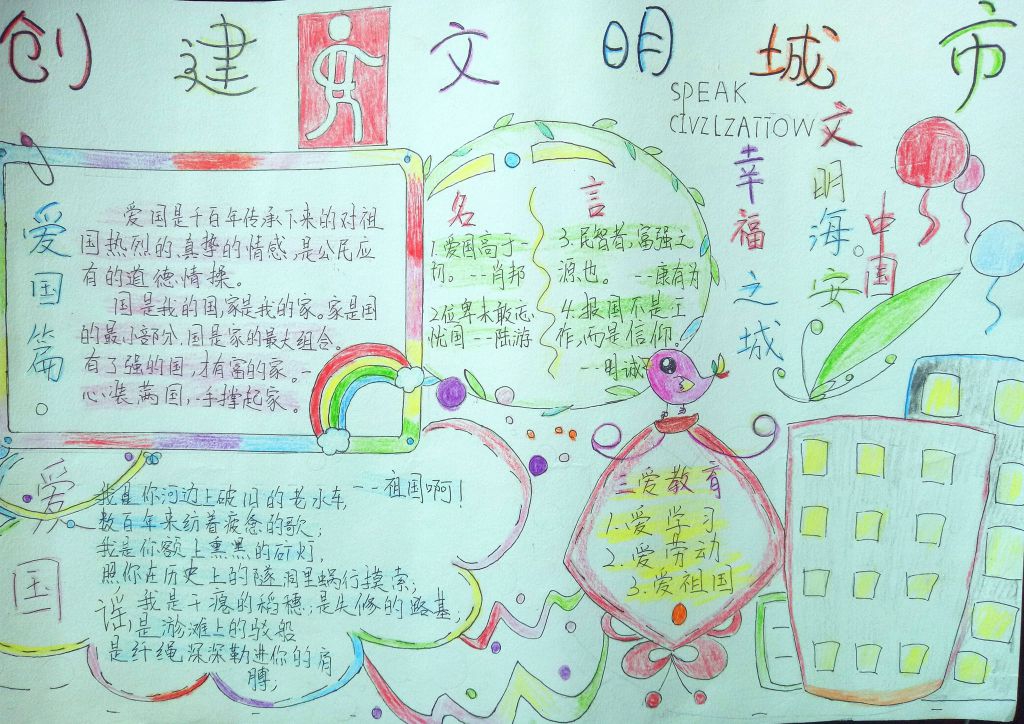 创建文明城市
SPEAK
CIVZLZATIOW
文明海安
幸福之城
中国
爱国篇。
爱国是千百年传承下来的对祖
国热烈的、真挚的情感,是公民应
有的道德情操。
国是我的国,家是我的家。家是国
的最小部分,国是家的最大组合。
有了强的国,才有富的家。一
心装满国,一手撑起家。
名言
1.爱国高于一
切。--肖邦
2位卑未敢忘
忧国--陆游
3.民智者,富强之
源也。--康有为
4.报国不是工
作,而是信仰。
--明诚
爱国谣
我是你河边上破旧的老水车,--祖国啊!
数百年来纺着疲惫的歌;
我是你额上熏黑的矿灯,
照你在历史上的隧洞里蜗行摸索;
我是干瘪的稻穗;是失修的路基;
是淤滩上的驳船
是纤绳深深勒进你的肩
膊;
三爱教育
1.爱学习
2.爱劳动
3.爱祖国